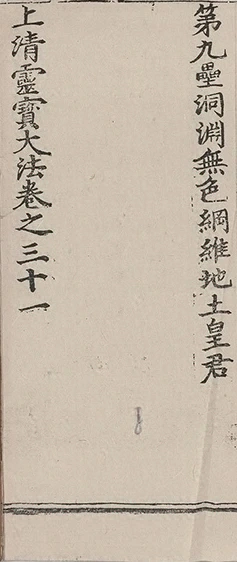 第九壘洞淵無色綱維地土皇君
上清靈寶大法卷之三十一